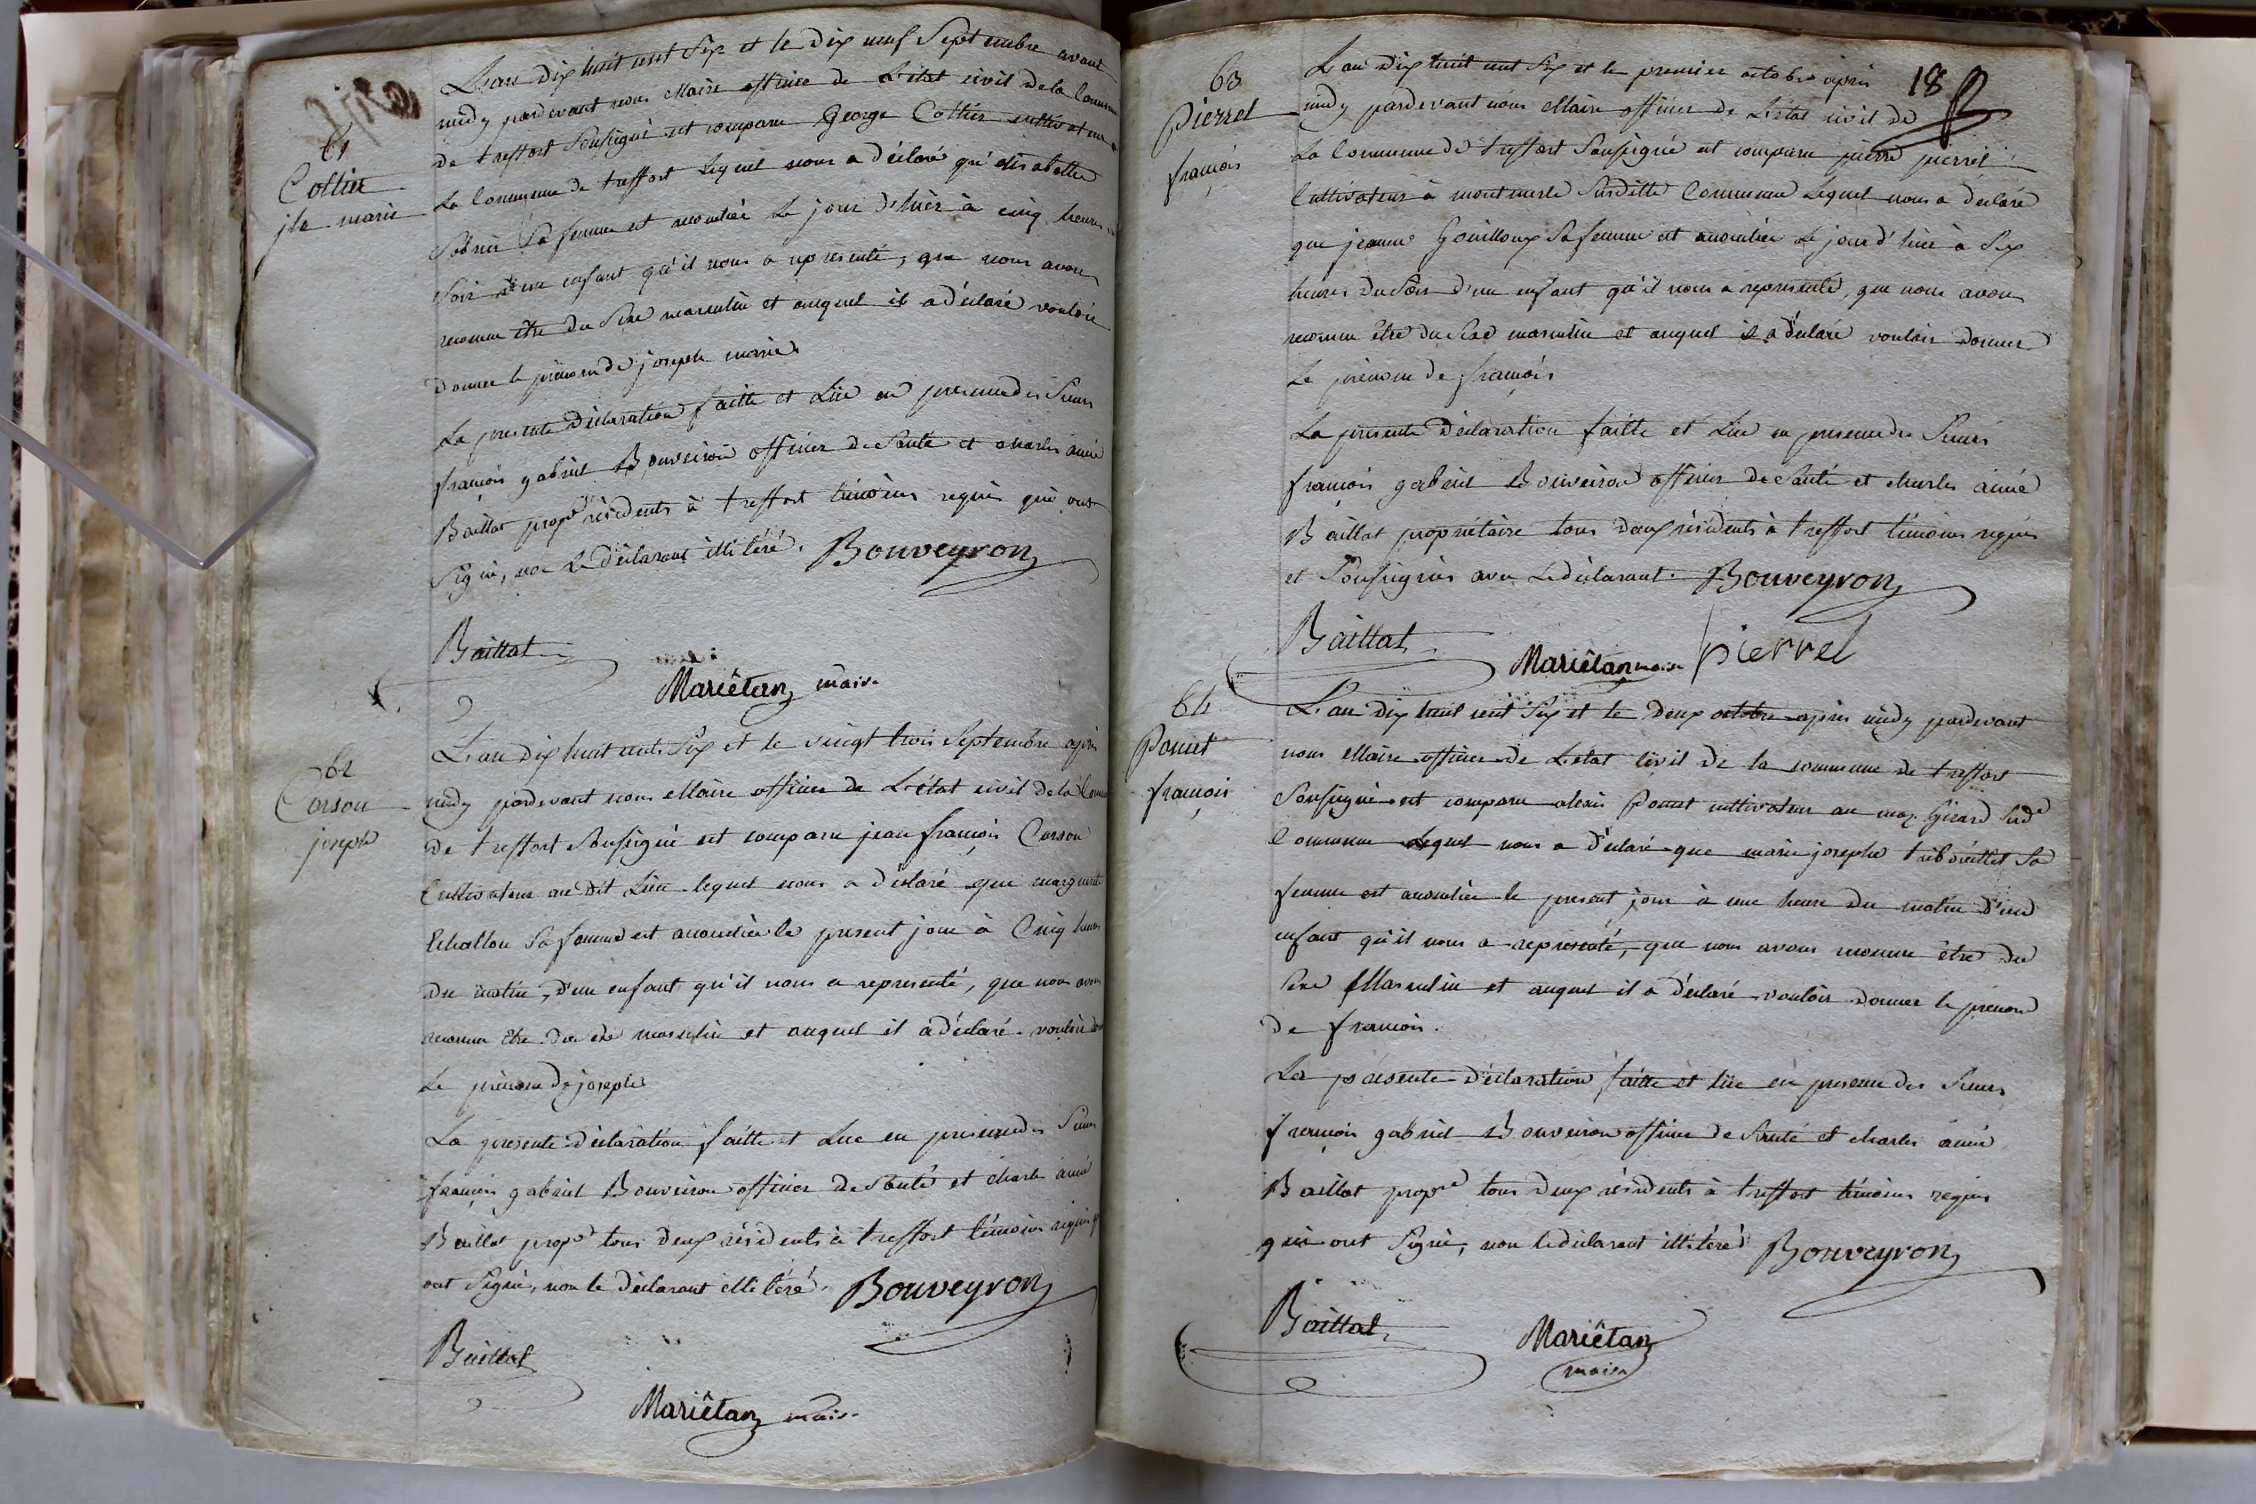 61
Cottier
jh marie
L'an dix huit cent Six et le dix neuf Septembre avant
midy pardevant nous Maire officier de L'état civil de la Commune
de treffort Soussigné est comparu George Cottier cultivateur
La Commune de treffort Lequel nous a déclaré qu'
Sa femme est accouchée Le jour d'hier à cinq heures
Soir d'un enfant qu'il nous a représenté, que nous avons
reconnu être du Sexe masculin et auquel il a déclaré vouloir
donner le prénom de joseph marie
La presente déclaration faitte et Lüe en presence des Sieurs
françois gabriel Bouveiron officier de Santé et charles aimé
Baillat prop.re résidents à treffort témoins requis qui ont
Signé, non Le déclarant illitéré. Bouveyron
Baillat
Mariétan maire
62
Corson
joseph
L'an dix huit cent Six et le vingt trois Septembre après
midy pardevant nous Maire officier de L'état civil de la Commune
de treffort Soussigné est comparu jean françois Corson
Cultivateur au dit Lieu lequel nous a déclaré que marguerite
Echallon Sa femme est accouchée le present jour à Cinq heures
du matin, d'un enfant qu'il nous a representé, que nous avons
reconnu être du sexe masculin et auquel il a déclaré vouloir
Le prénom de joseph
La presente déclaration faitte et Lue en presence des Sieurs
françois gabriel Bouveiron officier de Santé et charle aimé
Baillat prop.re tous deux résidents à treffort témoins requis
ont Signé, non le déclarant illitéré. Bouveyron
Baillat
Mariétan maire
18
63
Pierrel
françois
L'an dix huit cent Six et le premier octobre après
midy pardevant nous Maire officier de L'état civil de
La Commune de treffort Soussigné est comparu pierre pierrel
Cultivateur à montmerle Susditte Commune Lequel nous a déclaré
que jeanne Gouilloux Sa femme est accouchée Le jour d'hier à Six
heures du Soir d'un enfant qu'il nous a representé, que nous avons
reconnu être du Sexe masculin et auquel il a déclaré vouloir donner
Le prénom de françois
La presente déclaration faitte et Lüe en presence des Sieurs
françois gabriel Bouveiron officier de Santé et charles aimé
Baillat propriétaire tous deux résidents à treffort témoins requis
et Soussignés avec Le déclarant. Bouveyron
Baillat
Mariétan maire pierrel
64
Poncet
françois
L'an dix huit cent Six et le deux octobre après midy pardevant
nous Maire officier de L'état Civil de la commune de treffort
Soussigné est comparu alexis Poncet cultivateur au max Girard Sud.e
Commune Lequel nous a déclaré que marie josephe Sa
femme est accouchée le present jour à une heure du matin d'un
enfant qu'il nous a representé, que nous avons reconnu être du
Sexe Masculin et auquel il a déclaré vouloir donner le prénom
de françois.
La présente déclaration faitte et lüe en presence des Sieurs
françois gabriel Bouveiron officier de Santé et charles aimé
Baillat prop.re tous deux résidents à treffort témoins requis
qui ont Signé, non le déclarant illitéré Bouveyron
Baillat
Mariétan
maire